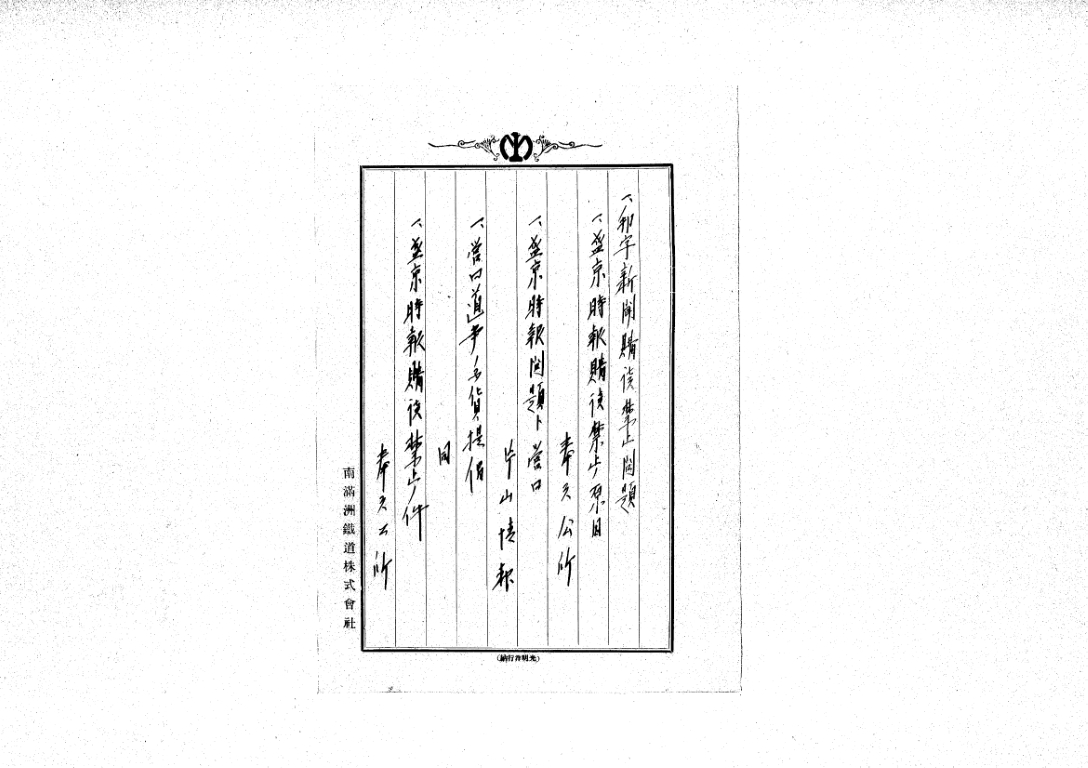 一、邦字新聞購読禁止問題
一、盛京時報購読禁止ノ原因
奉天公所
一、盛京時報問題ト営口
片山情報
一、営口道尹ノ国貨提倡
同
一、盛京時報購読禁止ノ件
奉天公所
南滿洲鐵道株式會社
(光明洋行納)